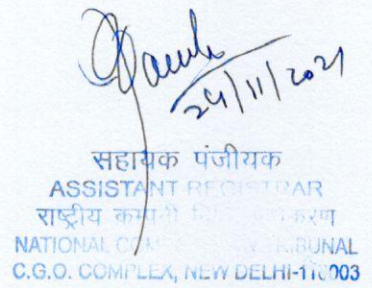 24/11/2021
सहायक पंजीयक
ASSISTANT REGISTRAR
राष्ट्रीय कम्पनी
NATIONAL TRIBUNAL
C.G.O. COMPLEX, NEW DELHI-110003